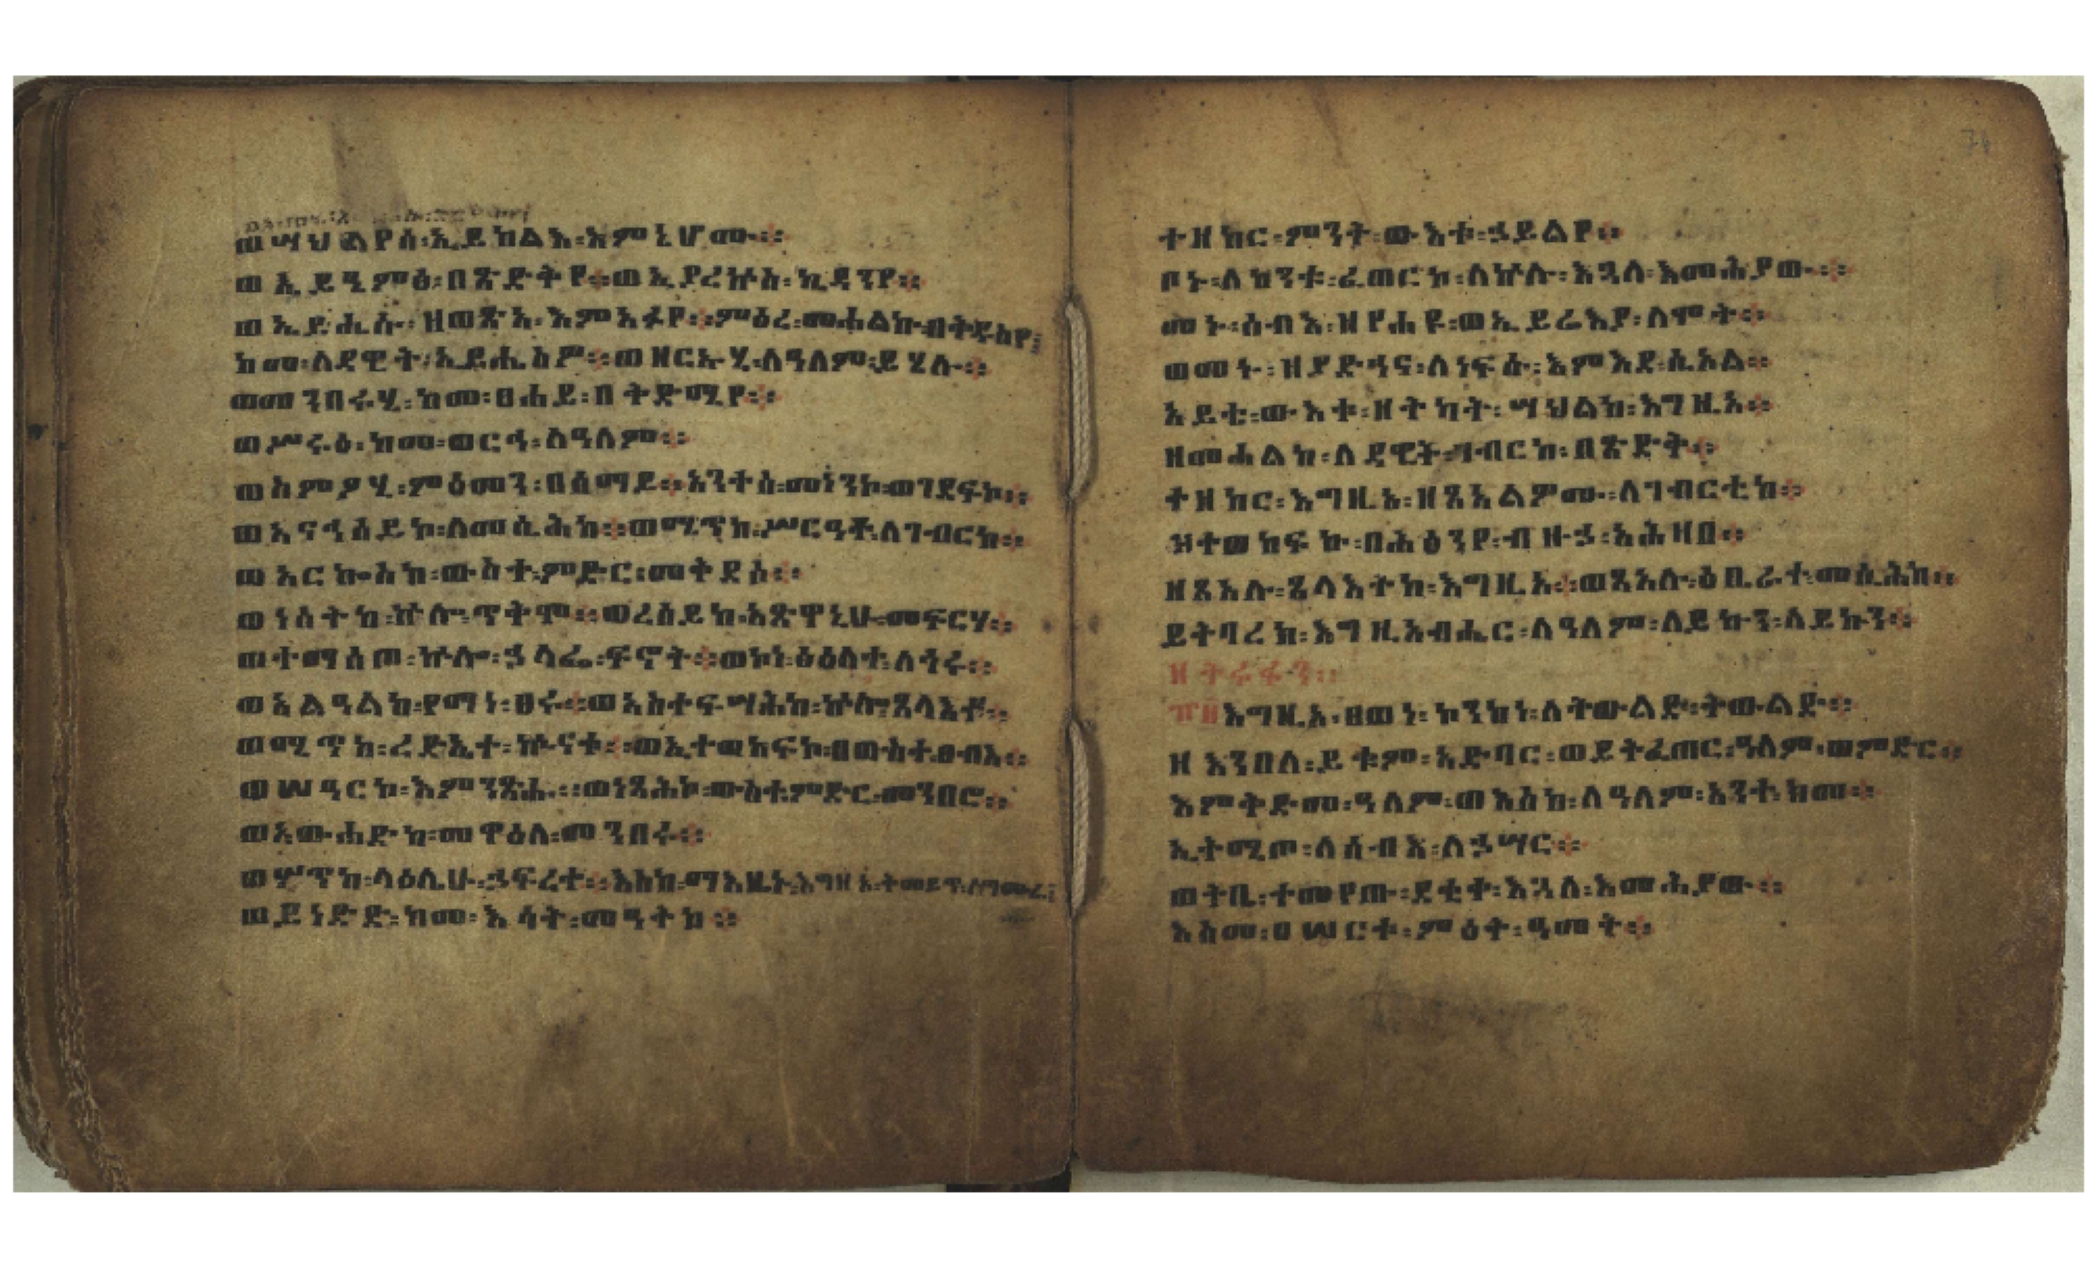 ወሣህልየሰ፡ኢይከልእ፡እምኔሆሙ።
ወኢይዔምፅ፡በጽድቅየ፡፡ወኢያረኵስ፡ኪዳንየ።
ወኢይሔሱ፡ዘወጽአ፡እምአፉየ፡፡ምዕረ፡መሐልኩ፡በቅዱስየ፤
ከመ፡ለዳዊት፡ኢይሔስዎ፡፡ወዘርኡሂ፡ለዓለም፡ይሄሉ።
ወመንበሩሂ፡ከመ፡ፀሐይ፡በቅድሜየ።
ወሥሩዕ፡ከመ፡ወርኅ፡ለዓለም።
ወስምዖሂ፡ምዕመን፡በሰማይ፡፡አንተሰ፡መነንኮ፡ወገደፍኮ።
ወአናኅስይኮ፡ለመሲሕከ፡፡ወሜጥከ፡ሥርዓቶ፡ለገብርከ።
ወአርኰስከ፡ውስተ፡ምድር፡መቅደሰ።
ወነሰትከ፡ኵሎ፡ጥቅሞ፡፡ወረሰይከ፡አጽዋኒሁ፡መፍርሃ።
ወተማሰጦ፡ኵሎ፡ኃላፌ፡ፍኖት፡፡ወኮነ፡ፅዕለተ፡ለጎሩ።
ወአልዓልከ፡የማነ፡ፀሩ፡፡ወአስተፍሣሕከ፡ኵሎ፡ጸላእቶ።
ወሜጥከ፡ረድኤተ፡ኵናቱ፡፡ወኢተወከፍኮ፡በውስተ፡ፀብእ።
ወሠዓርኮ፡እምንጽሑ፡፡ወነጻሕኮ፡ውስተ፡ምድር፡መንበሮ።
ወአውሐድከ፡መዋዕለ፡መንበሩ።
ወሦጥከ፡ላዕሌሁ፡ኃፍረተ፡፡እስከ፡ማእዜኑ፡እግዚኦ፡ትመይጥ፡ለግሙራ፤
ወይነድድ፡ከመ፡እሳት፡መዓትከ።
ተዘከር፡ምንት፡ውእቱ፡ኃይልየ።
ቦኑ፡ለከንቱ፡ፈጠርከ፡ለኵሉ፡እጓለ፡እመሕያው።
መኑ፡ሰብእ፡ዘየሐዩ፡ወኢይሬእያ፡ለሞት።
ወመኑ፡ዘያድኅና፡ለነፍሱ፡እምእደ፡ሲኦል።
አይቴ፡ውእቱ፡ዘትካት፡ሣህልከ፡እግዚኦ።
ዘመሐልከ፡ለዳዊት፡ገብርከ፡በጽድቅ።
ተዘከር፡እግዚኦ፡ዘጸአልዎሙ፡ለገብርቲከ።
ዝተወከፍኩ፡በሕፅንየ፡ብዙኃ፡አሕዛበ።
ዘጸአሉ፡ጸላእትከ፡እግዚኦ፡፡ወጸአሉ፡ዕቤራተ፡መሲሕከ።
ይትባረክ፡እግዚአብሔር፡ለዓለም፡ለይኩን፡ለይኩን።
ዘተሩፋን።
፹፱እግዚኦ፡ፀወነ፡ኮንከነ፡ለትውልድ፡ትውልድ።
ዘእንበለ፡ይቁም፡አድባር፡ወይትፈጠር፡ዓለም፡ወምድር።
እምቅድመ፡ዓለም፡ወእስከ፡ለዓለም፡አንተ፡ክመ።
ኢትሚጦ፡ለሰብእ፡ለኃሣር።
ወትቤ፡ተመየጡ፡ደቂቀ፡እጓለ፡እመሕያው።
እስመ፡፲፻ርቱ፡ምዕት፡ዓመት።